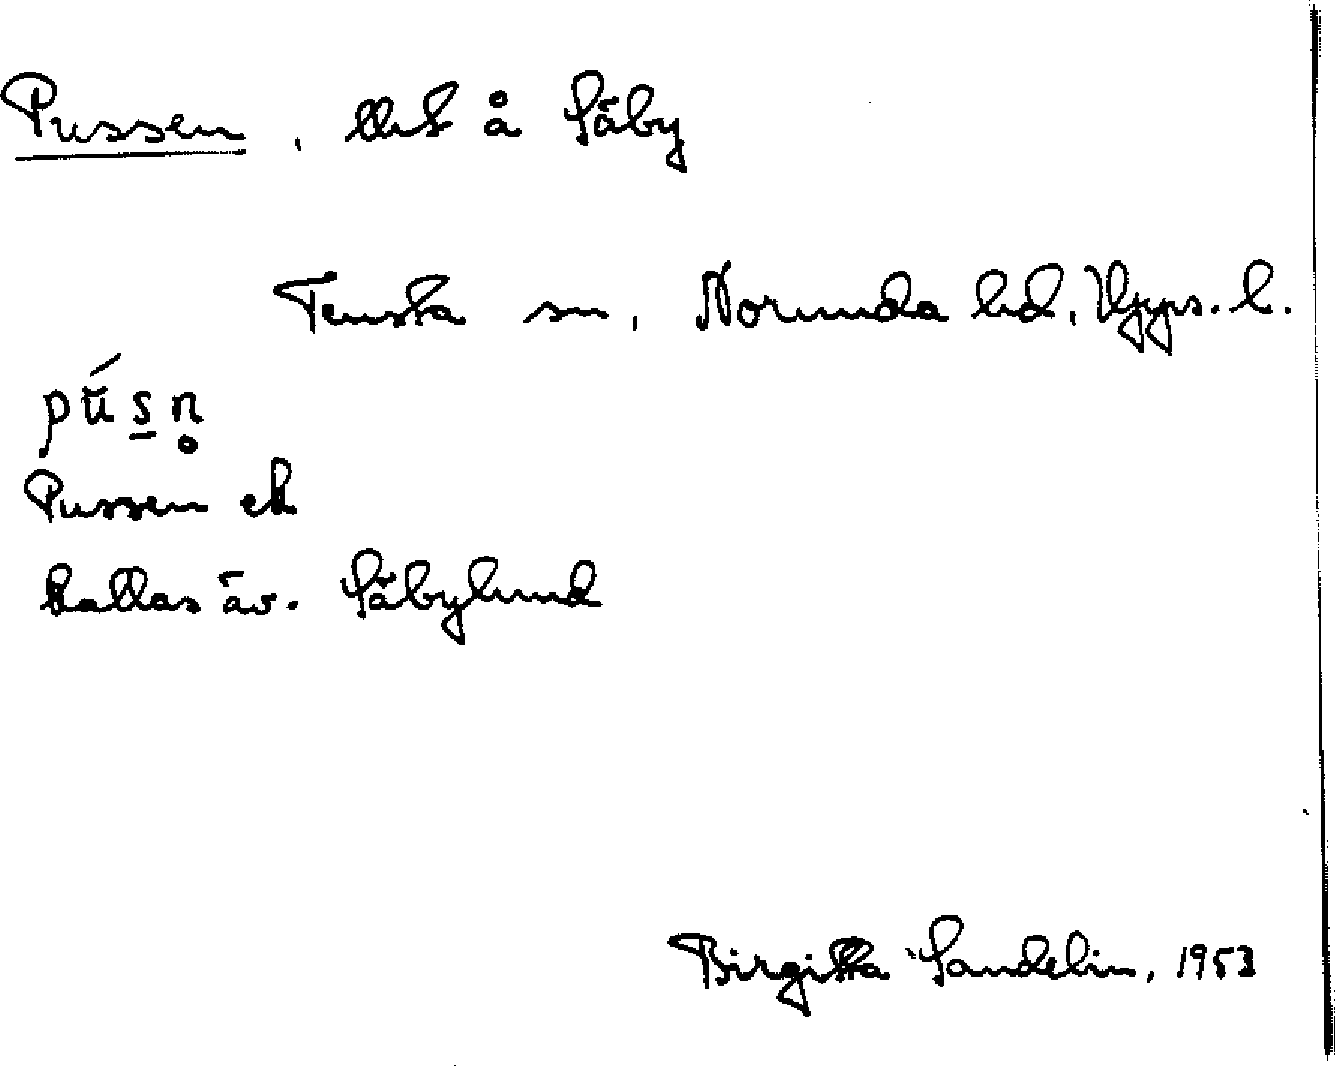 Pussen, lht å Säby
Tensta sn, Norunda hd, Upps. l.
pú̆s̲n̥
Pussen ek
kallas äv. Säbylund
Birgitta Sandelin, 1953